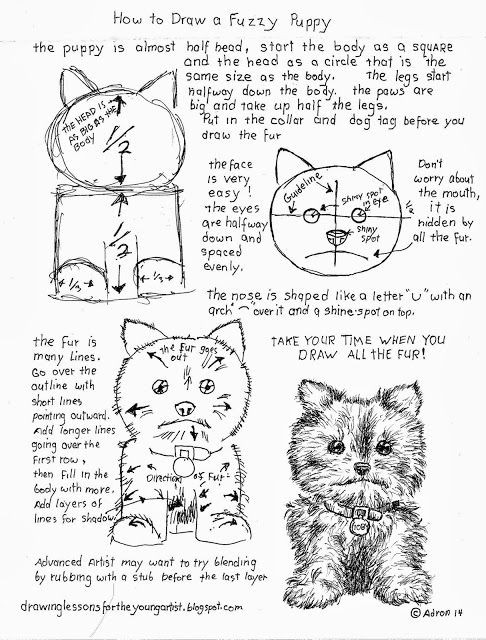 How to Draw a Fuzzy Puppy
the puppy is almost half head, start the body as a square
and the head as a circle that is the
same size as the body. the legs start
halfway down the body. the paws are
big and take up half the legs.
Put in the collar and dog tag before you
draw the fur
THE HEAD IS
AS BIG AS THE
BODY
1/2
1/2
1/3
1/3
the face
is very
easy!
The eyes
are halfway
down and
spaced
evenly.
Guideline
shiny spot
in eye
1/2
shiny
spot
Don't
worry about
the mouth,
it is
hidden by
all the fur.
The nose is shaped like a letter "U" with an
arch "⌒" over it and a shine spot on top.
the fur is
many lines.
Go over the
outline with
short lines
pointing outward.
Add longer lines
going over the
first row,
then fill in the
body with more.
Add layers of
lines for shadow.
the fur goes
out
Direction of Fur
TAKE YOUR TIME WHEN YOU
DRAW ALL THE FUR!
BOB
Advanced Artist may want to try blending
by rubbing with a stub before the last layer
drawinglessonsfortheyoungartist.blogspot.com
© Adron 14